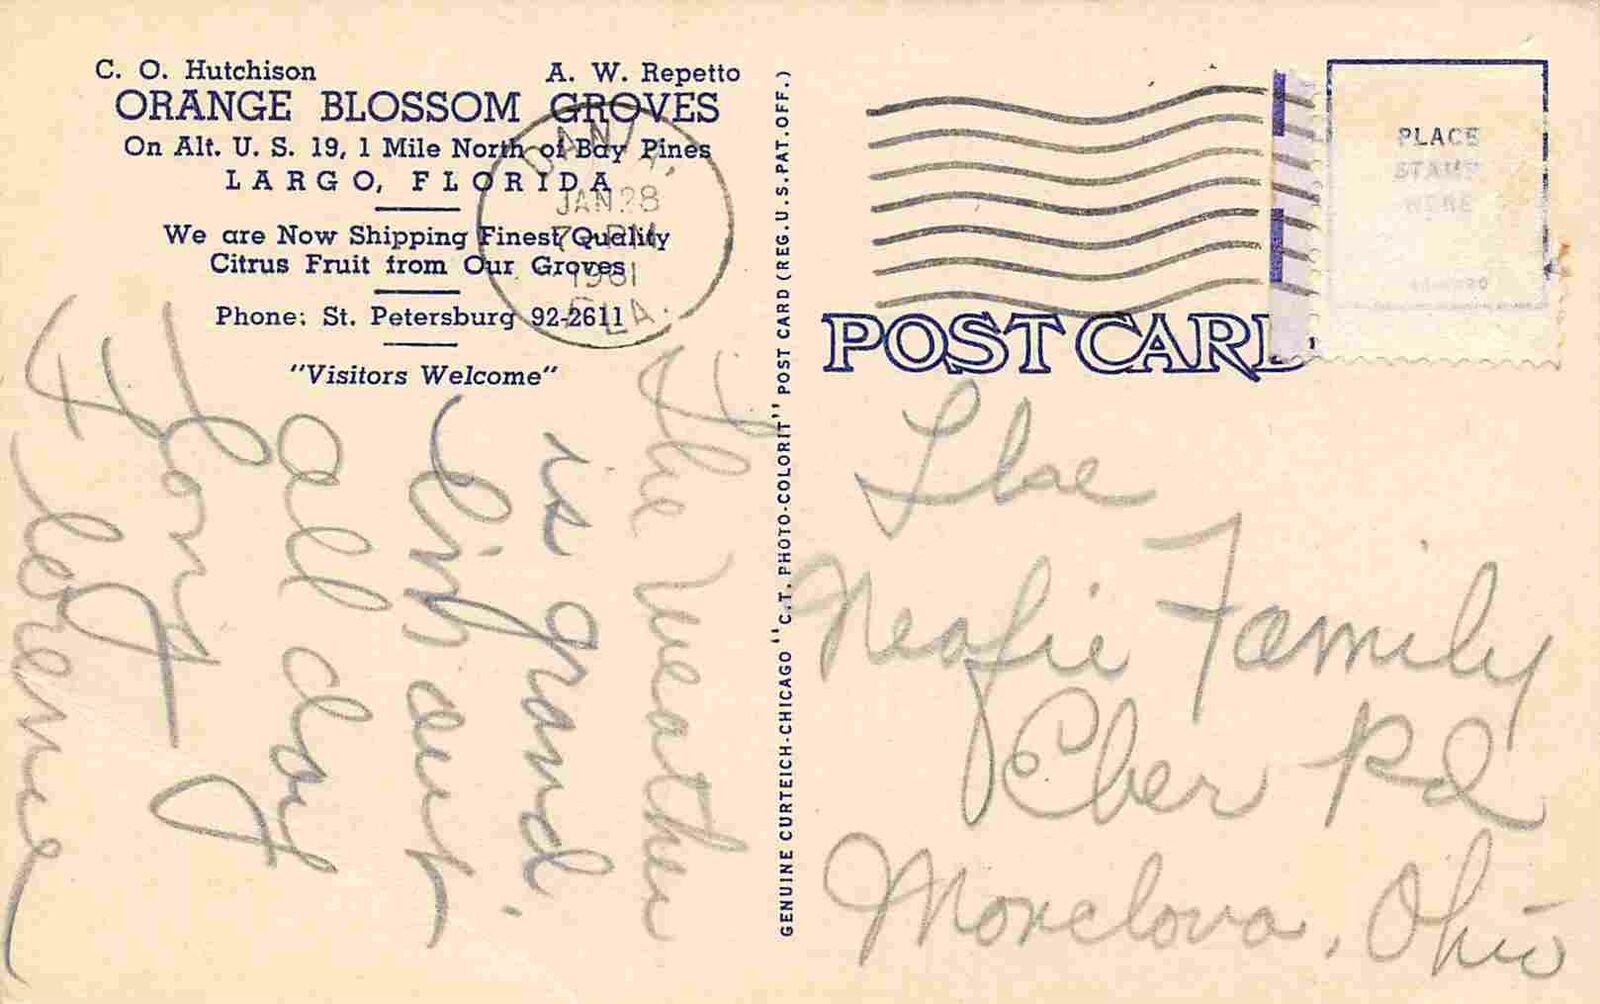 C. O. Hutchison A. W. Repetto
ORANGE BLOSSOM GROVES
On Alt. U. S. 19, 1 Mile North of Bay Pines
LARGO, FLORIDA
We are Now Shipping Finest Quality
Citrus Fruit from Our Groves
Phone: St. Petersburg 92-2611
"Visitors Welcome"
DANIA,
JAN 28
PM
1961
FLA.
The Weather
is grand.
Linh out
all day
long
Florence
GENUINE CURTEICH-CHICAGO "C.T. PHOTO-COLORIT" POST CARD (REG. U.S. PAT. OFF.)
PLACE
STAMP
HERE
POST CARD
The
Neafie Family
Eber Rd
Monclova, Ohio